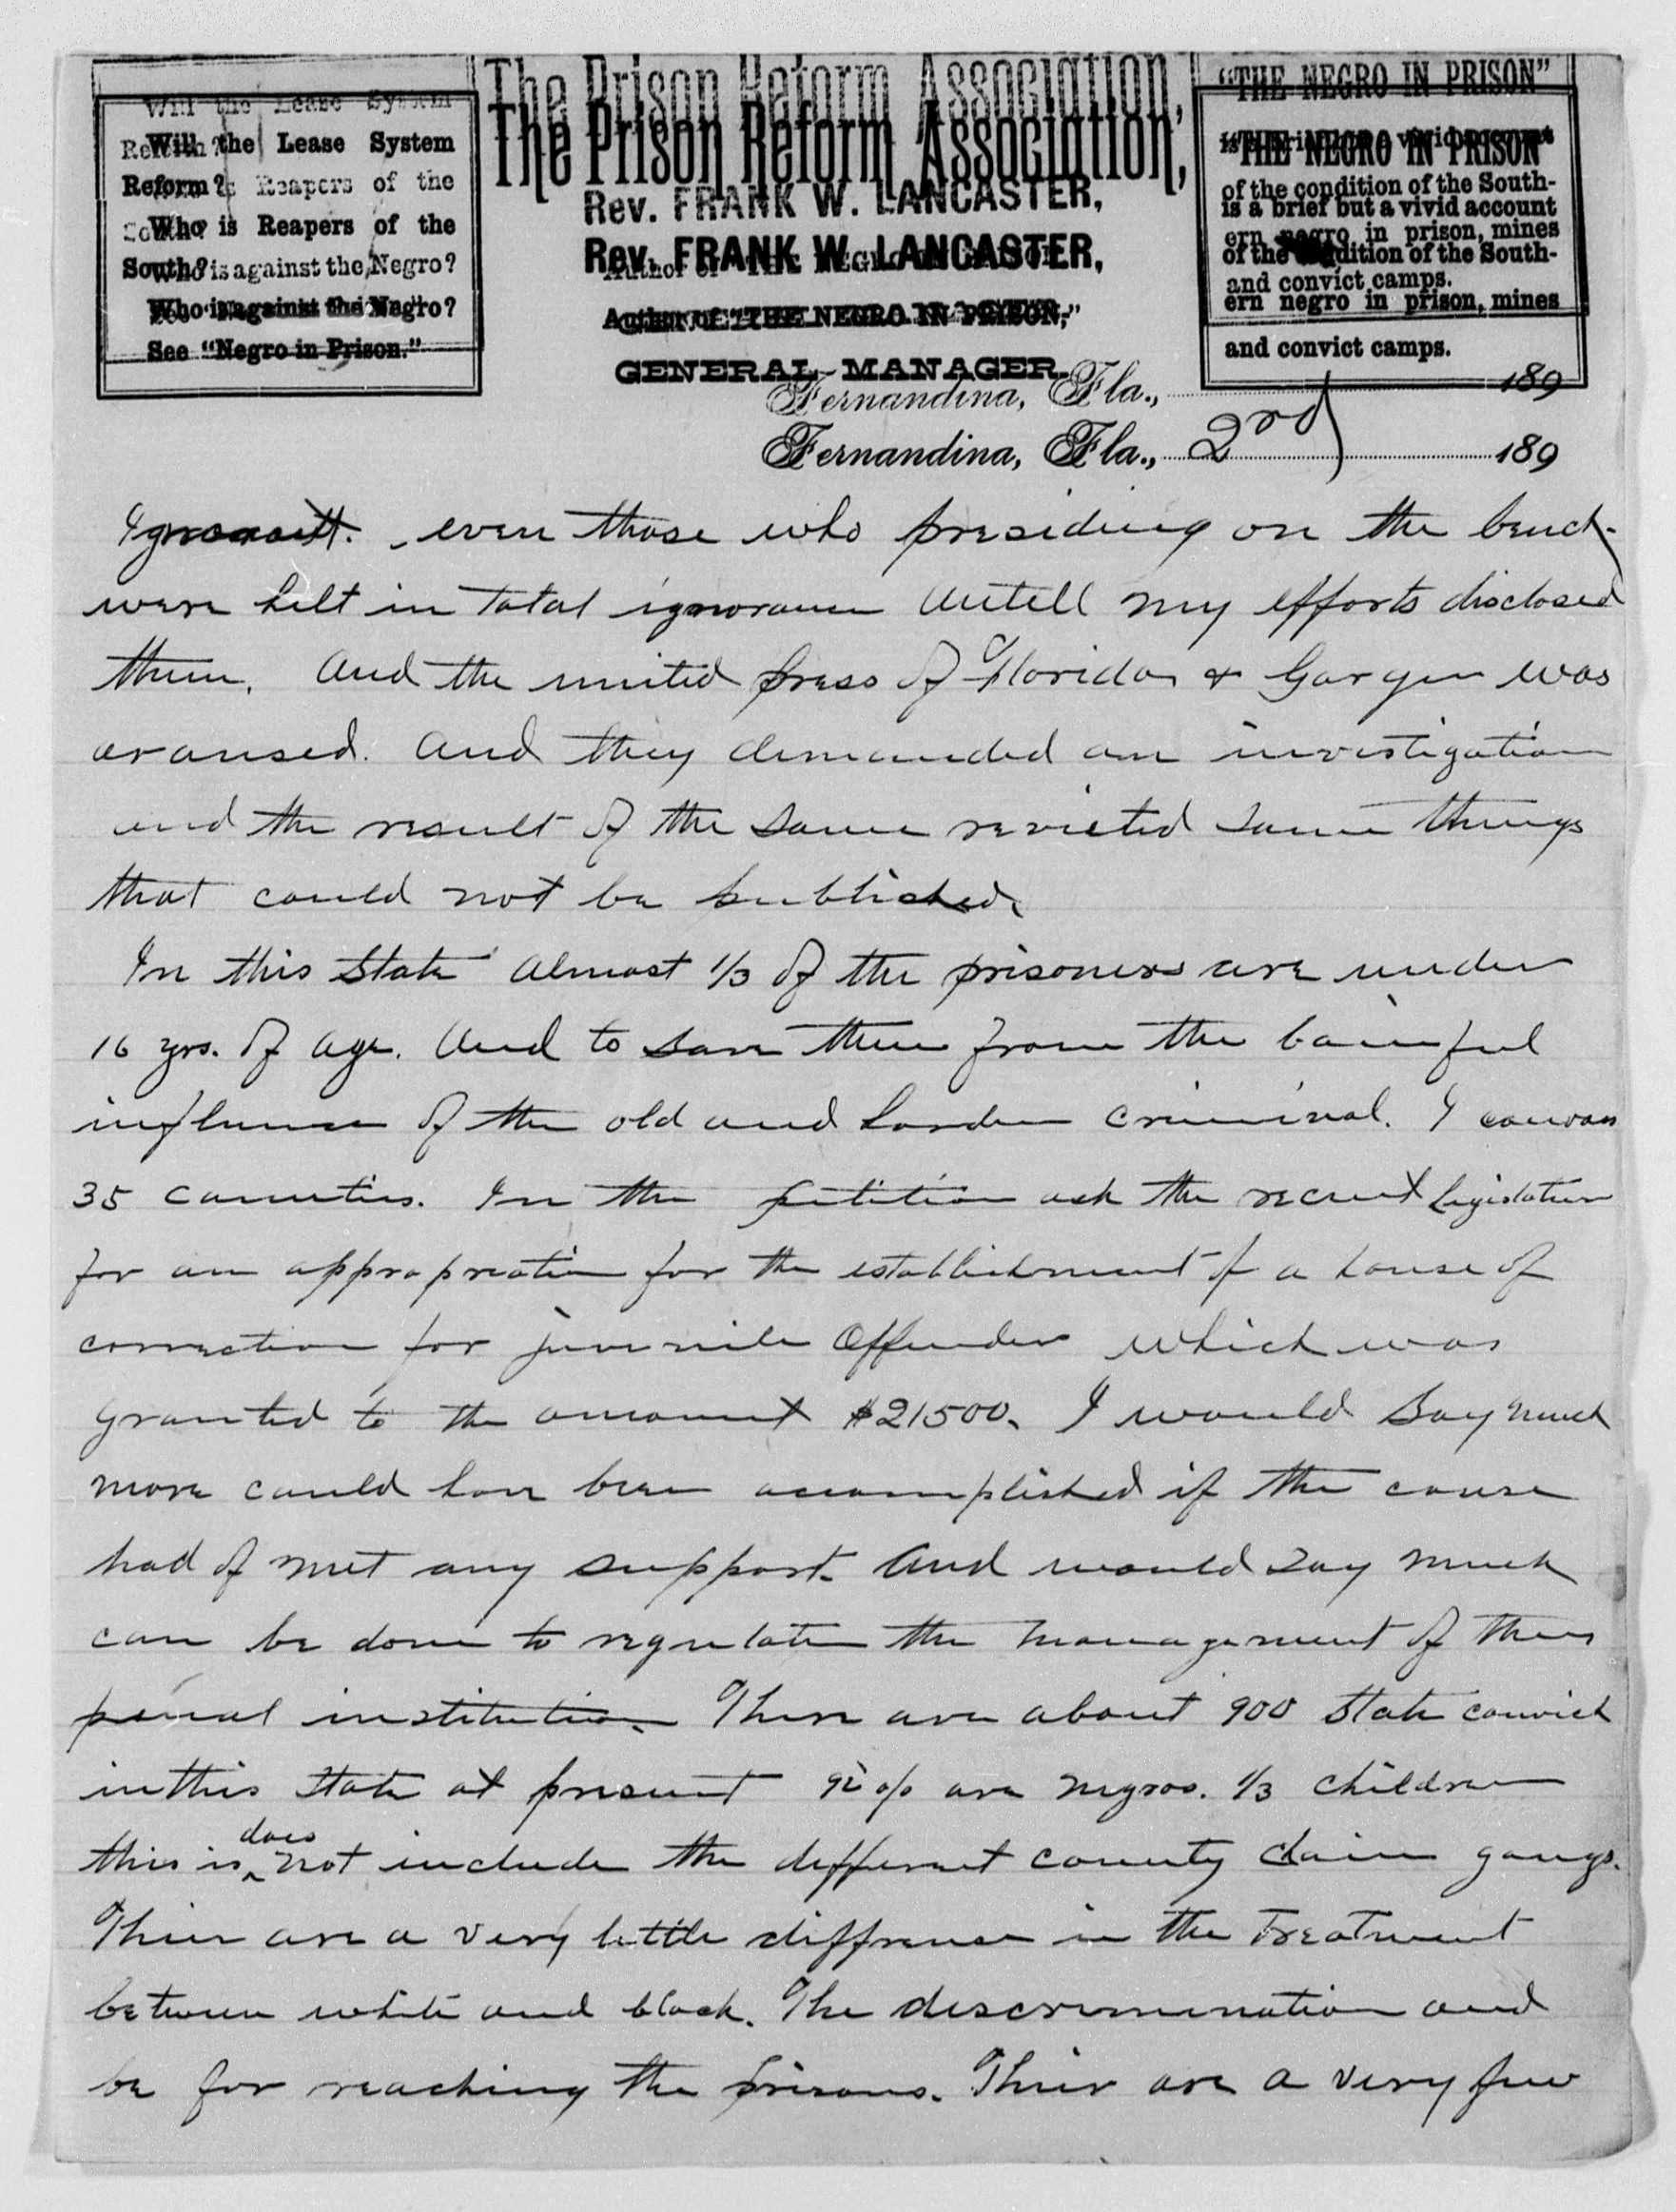 Will the Lease System
Reform?
Who is Reapers of the
South?
Who is against the Negro?
See "Negro in Prison."
The Prison Reform Association,
Rev. FRANK W. LANCASTER,
Author of "THE NEGRO IN PRISON,"
GENERAL MANAGER.
"THE NEGRO IN PRISON"
is a brief but a vivid account
of the condition of the South-
ern negro in prison, mines
and convict camps.
Fernandina, Fla., 189
Fernandina, Fla., 2nd) 189
even those who presiding on the bench
were hilt in total ignorance untell my efforts disclosed
them. And the united press of Florida & was
aroused. And they demanded an investigation
and the result of the same some things
that could not be published.
In this State almost 1/3 of the prisoners are under
16 yrs. of age. And to save them from the bainful
influence of the old and harden criminal. I canvas
35 counties. In the petition ask the recent Legislature
for an appropreation for the establishment of a house of
correction for juvenile Offender which was
granted to the amount $21500. I would say much
more could have been accomplished if the cause
had of met any support. And would say much
can be done to regulate the management of these
penal institution. There are about 900 State convict
in this State at present 92 o/o are negros. 1/3 children
this is does not include the different county chain gangs.
Thier are a very little diffrence in the Treatment
between white and black. The discrimination and
be for reaching the prisons. Thier are a very few